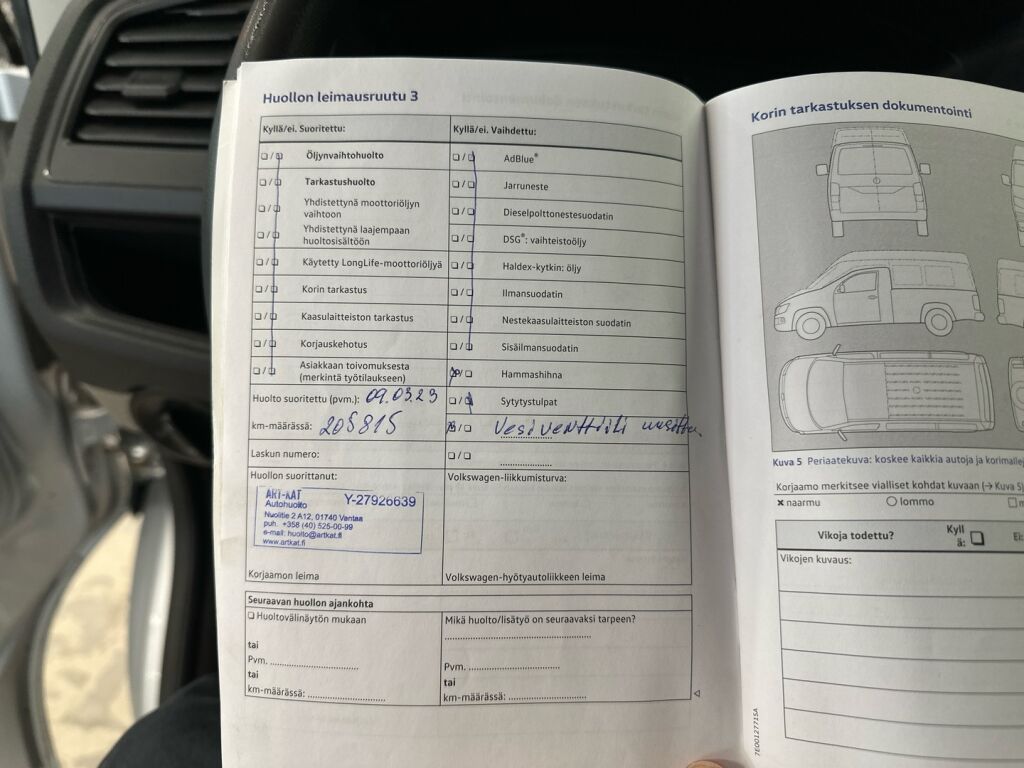 Huollon leimausruutu 3
Kyllä/ei. Suoritettu:
❑ / ❑ Öljynvaihtohuolto
❑ / ❑ Tarkastushuolto
❑ / ❑ Yhdistettynä moottoriöljyn
vaihtoon
❑ / ❑ Yhdistettynä laajempaan
huoltosisältöön
❑ / ❑ Käytetty LongLife-moottoriöljyä
❑ / ❑ Korin tarkastus
❑ / ❑ Kaasulaitteiston tarkastus
❑ / ❑ Korjauskehotus
❑ / ❑ Asiakkaan toivomuksesta
(merkintä työtilaukseen)
Huolto suoritettu (pvm.): 09.03.23
km-määrässä: 205815
Laskun numero:
Huollon suorittanut:
ART-KAT
Autohuolto Y-27926639
Nuolitie 2 A12, 01740 Vantaa
puh. +358 (40) 525-00-99
e-mail: huolto@artkat.fi
www.artkat.fi
Korjaamon leima
Kyllä/ei. Vaihdettu:
❑ / ❑ AdBlue®
❑ / ❑ Jarruneste
❑ / ❑ Dieselpolttonestesuodatin
❑ / ❑ DSG®: vaihteistoöljy
❑ / ❑ Haldex-kytkin: öljy
❑ / ❑ Ilmansuodatin
❑ / ❑ Nestekaasulaitteiston suodatin
❑ / ❑ Sisäilmansuodatin
❑ / ❑ Hammashihna
❑ / ❑ Sytytystulpat
❑ / ❑ Vesiventtiili uusittu
❑ / ❑ ....................
Volkswagen-liikkumisturva:
Volkswagen-hyötyautoliikkeen leima
Seuraavan huollon ajankohta
❑ Huoltovälinäytön mukaan
tai
Pvm. ..............................
tai
km-määrässä: ..........................
Mikä huolto/lisätyö on seuraavaksi tarpeen?
..................................................
Pvm. ..............................
tai
km-määrässä: ..........................
Korin tarkastuksen dokumentointi
Kuva 5 Periaatekuva: koskee kaikkia autoja ja
Korjaamo merkitsee vialliset kohdat kuvaan (→ Kuva 5)
× naarmu ○ lommo ❑
Vikoja todettu? Kyll
ä: ❑ Ei:
Vikojen kuvaus:
7E0012771SA